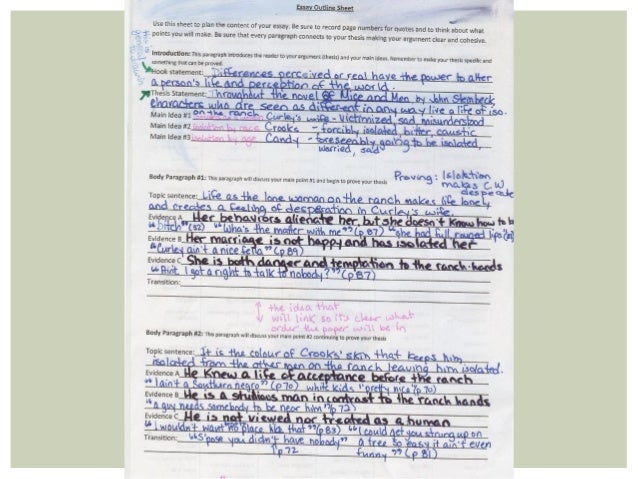 Essay Outline Sheet
Use this sheet to plan the content of your essay. Be sure to record page numbers for quotes and to think about what
points you will make. Be sure that every paragraph connects to your thesis making your argument clear and cohesive.
Introduction: This paragraph introduces the reader to your argument (thesis) and your main ideas. Remember to make your thesis specific and
something that can be proved.
Hook statement: Differences perceived or real have the power to alter
a person's life and perception of the world.
Thesis Statement: Throughout the novel Of Mice and Men by John Steinbeck,
characters who are seen as different in any way live a life of iso.
on the ranch
Main Idea #1 Curley's wife - victimized, sad, misunderstood
Main Idea #2 isolation by race Crooks - forcibly isolated, bitter, caustic
Main Idea #3 isolation by age Candy - foreseeably going to be isolated,
worried, sad
Proving: Isolation
makes C.W
desperate
Body Paragraph #1: This paragraph will discuss your main point #1 and begin to prove your thesis
Topic sentence: Life as the lone woman on the ranch makes life lonely
and creates a feeling of desperation in Curley's wife.
Evidence A Her behaviors alienate her, but she doesn't know how to b
"Bitch" (32) "What's the matter with me" (p 87) "she had full rouged lips
Evidence B Her marriage is not happy and has isolated her
"Curley ain't a nice fella" (p 89)
Evidence C She is both danger and temptation to the ranch hands
"Aint I got a right to talk to nobody?" (p 87)
Transition:
the idea that
will link so its clear what
order the paper will be in
Body Paragraph #2: This paragraph will discuss your main point #2 continuing to prove your thesis
Topic sentence: It is the colour of Crooks' skin that keeps him
isolated from the other men on the ranch leaving him isolated.
Evidence A He knew a life of acceptance before the ranch
"I ain't a Southern negro" (p 70) white kids "pretty nice" (p 70)
Evidence B He is a studious man in contrast to the ranch hands
"a guy needs somebody to be near him" (p 72)
Evidence C He is not viewed nor treated as a human
"I wouldn't want no place like that" (p 83) "I could get you strung up on
Transition: "S'pose you didn't have nobody" a tree so easy it ain't even
p 72 funny" (p 81)